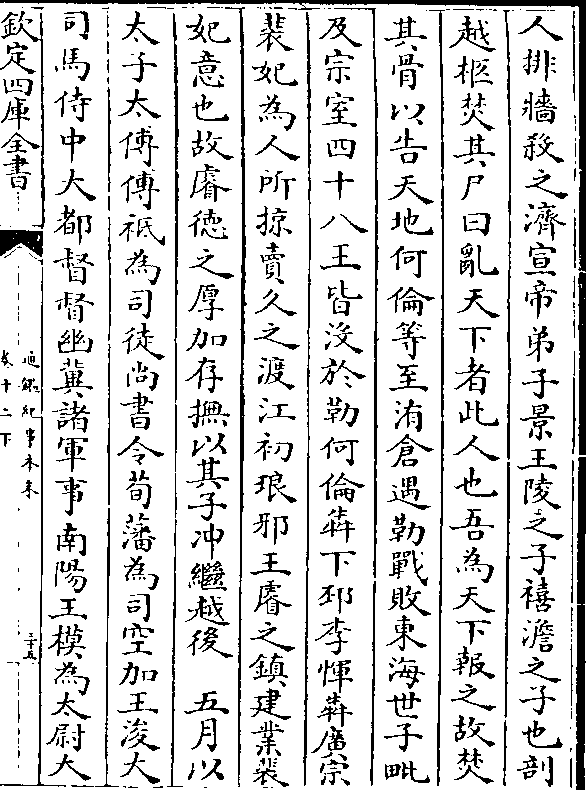 人排牆殺之濟宣帝弟子景王陵之子禧澹之子也剖
越柩焚其尸曰亂天下者此人也吾為天下報之故焚
其骨以告天地何倫等至洧倉遇勒戰敗東海世子毗
及宗室四十八王皆沒於勒何倫犇下邳李惲犇廣宗
裴妃為人所掠賣久之渡江初琅邪王睿之鎮建業裴
妃意也故睿德之厚加存撫以其子沖繼越後　五月以
太子太傅傅祗為司徒尚書令荀藩為司空加王浚大
司馬侍中大都督督幽冀諸軍事南陽王模為太尉大
欽定四庫全書
通鑑紀事本末
卷十二下
三十五